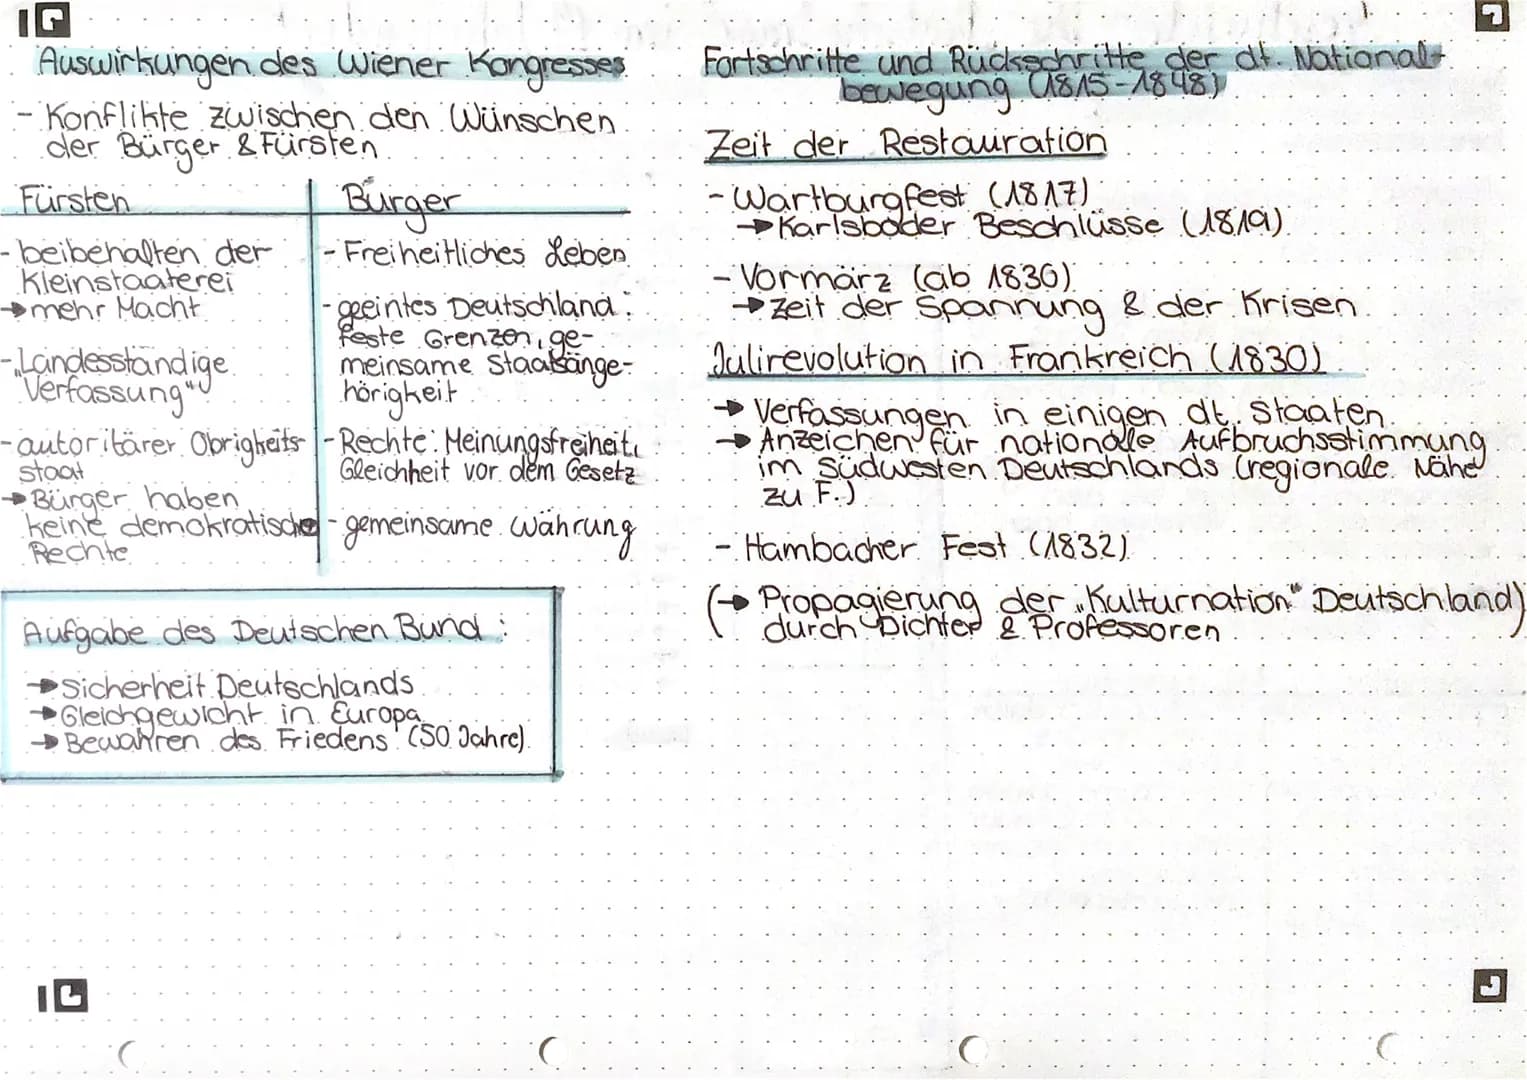 Auswirkungen des Wiener Kongresses
- Konflikte zwischen den Wünschen
der Bürger & Fürsten
Fürsten
- beibehalten der
Kleinstaaterei
→ mehr Macht
- „Landesständige
Verfassung"
- autoritärer Obrigkeits-
staat
→ Bürger haben
keine demokratische
Rechte
Bürger
- Freiheitliches Leben
- geeintes Deutschland:
feste Grenzen, ge-
meinsame Staatsange-
hörigkeit
- Rechte: Meinungsfreiheit,
Gleichheit vor dem Gesetz
- gemeinsame Währung
Aufgabe des Deutschen Bund:
→ Sicherheit Deutschlands
→ Gleichgewicht in Europa
→ Bewahren des Friedens (50 Jahre)
Fortschritte und Rückschritte der dt. National-
bewegung (1815-1848)
Zeit der Restauration
- Wartburgfest (1817)
→ Karlsbader Beschlüsse (1819)
- Vormärz (ab 1830)
→ Zeit der Spannung & der Krisen
Julirevolution in Frankreich (1830)
→ Verfassungen in einigen dt. Staaten
→ Anzeichen für nationale Aufbruchsstimmung
im Südwesten Deutschlands (regionale Nähe
zu F.)
- Hambacher Fest (1832)
(→ Propagierung der „Kulturnation" Deutschland)
durch Dichter & Professoren